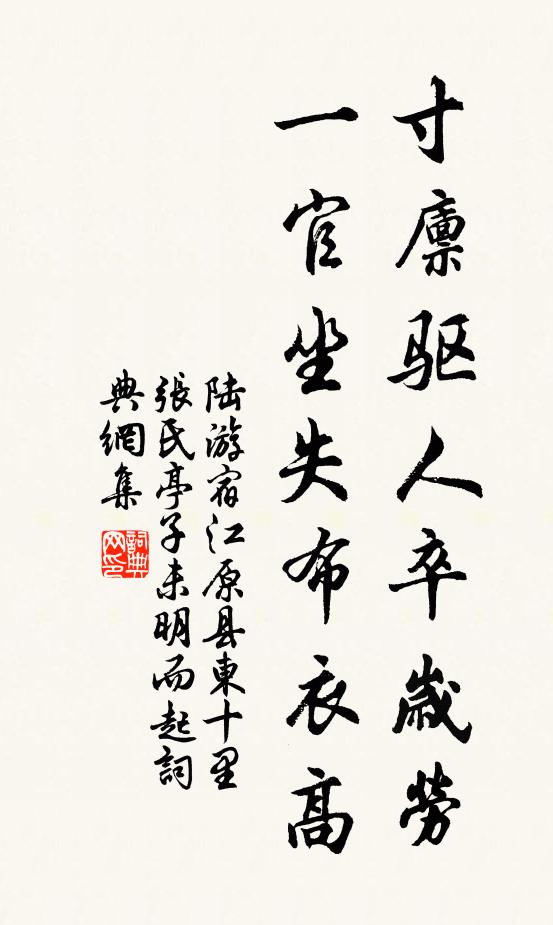 寸廪驱人卒歲勞
一官坐失布衣高
陆游宿江原县東十里
張氏亭子未明而起詞
典網集
詞典网印